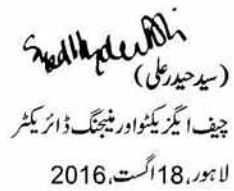 Syed Hyder Ali
(سید حیدر علی)
چیف ایگزیکٹو اور منیجنگ ڈائریکٹر
لاہور، 18 اگست، 2016